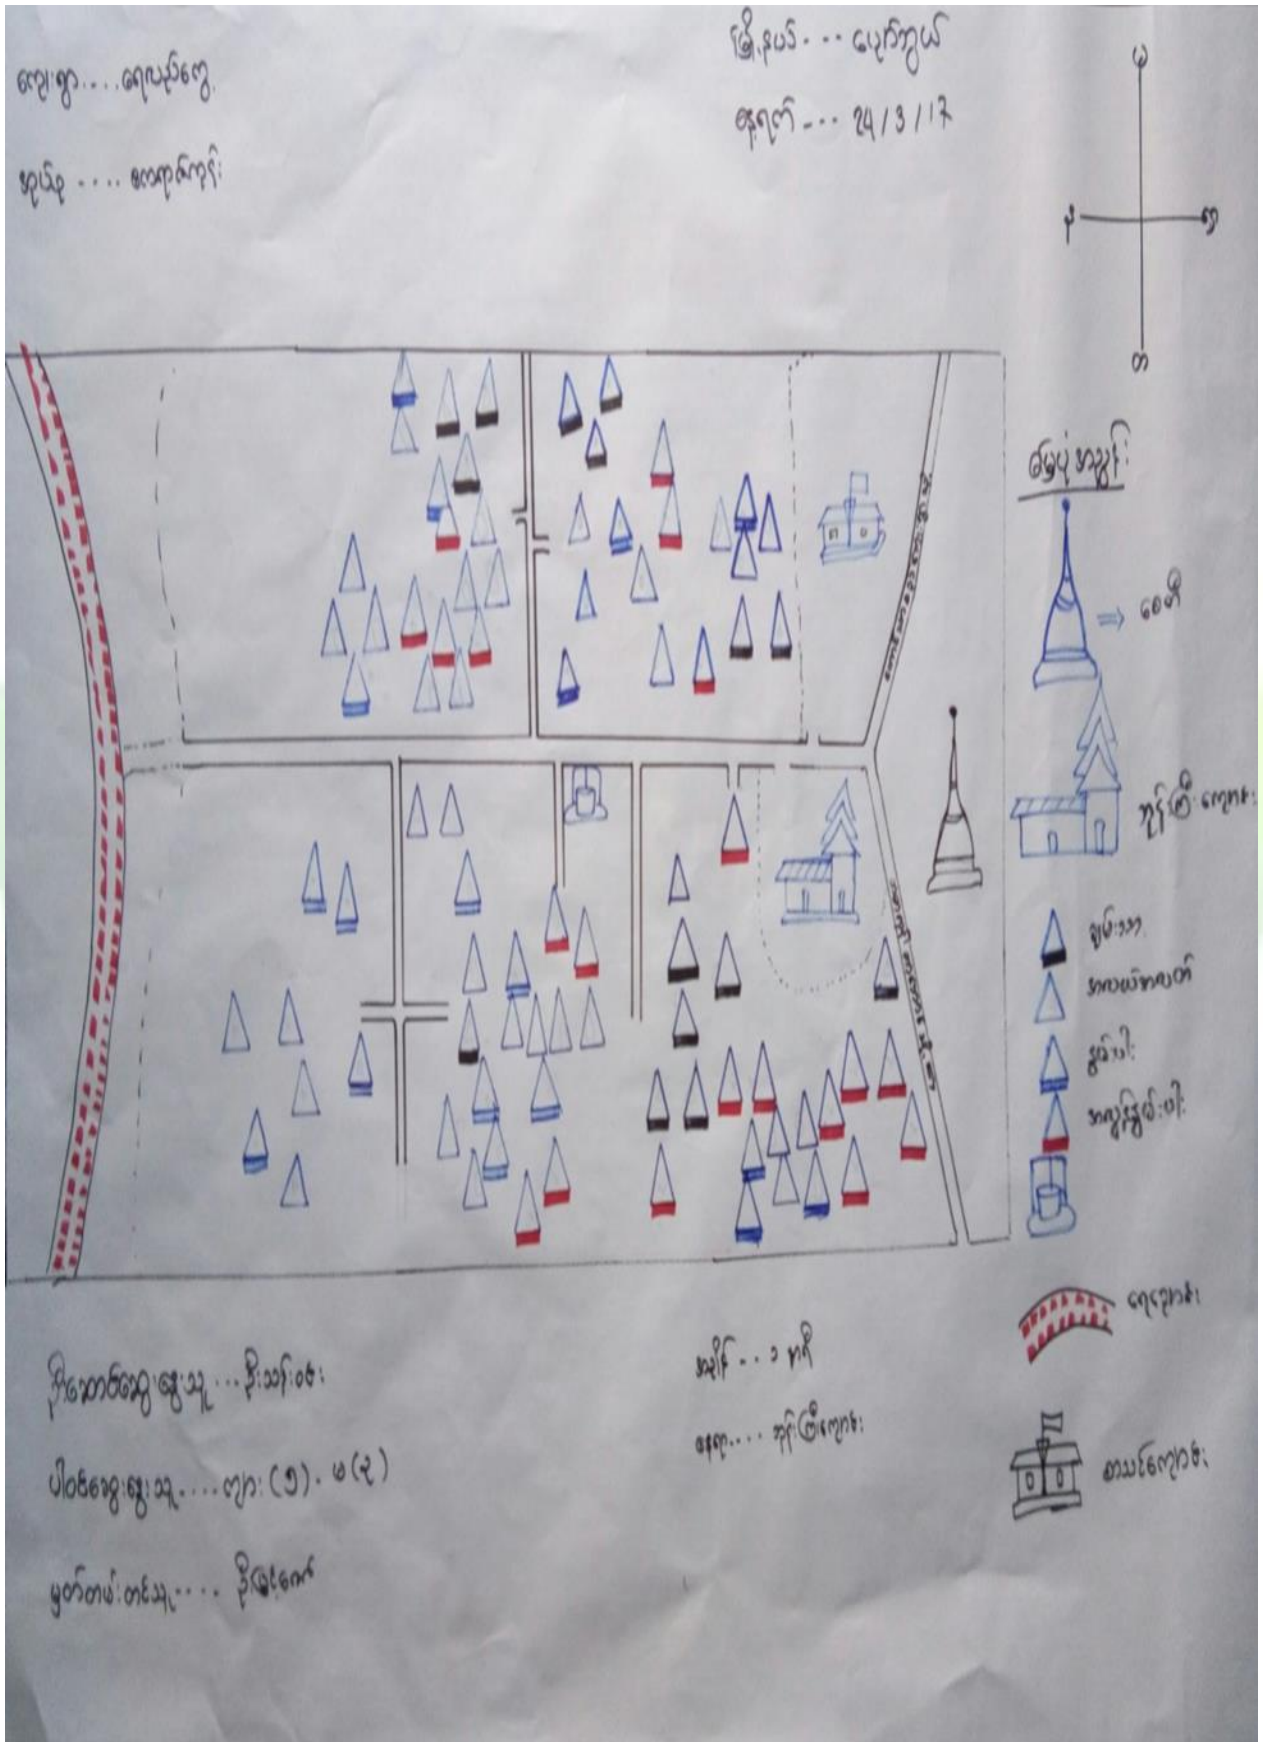 ကျေးရွာ....ရေလည်ကွေ့
အုပ်စု ....
မြို့နယ် --- ပေါက်
နေ့ရက် --- 24/3/17
မ
န
ရှ
တ
မြေပုံအညွှန်း
⇒ စေတီ
ဘုန်းကြီးကျောင်း
ချမ်းသာ
အလယ်အလတ်
နွမ်းပါး
အလွန်နွမ်းပါး
ရေချောင်း
စာသင်ကျောင်း
ဦးဆောင်ဆွေးနွေးသူ ... ဦးသန်းဝင်း
ပါဝင်ဆွေးနွေးသူ .... ကျား (၅) ၊ မ (၃)
မှတ်တမ်းတင်သူ ....
အချိန် ... ၁ နာရီ
နေရာ .... ဘုန်းကြီးကျောင်း